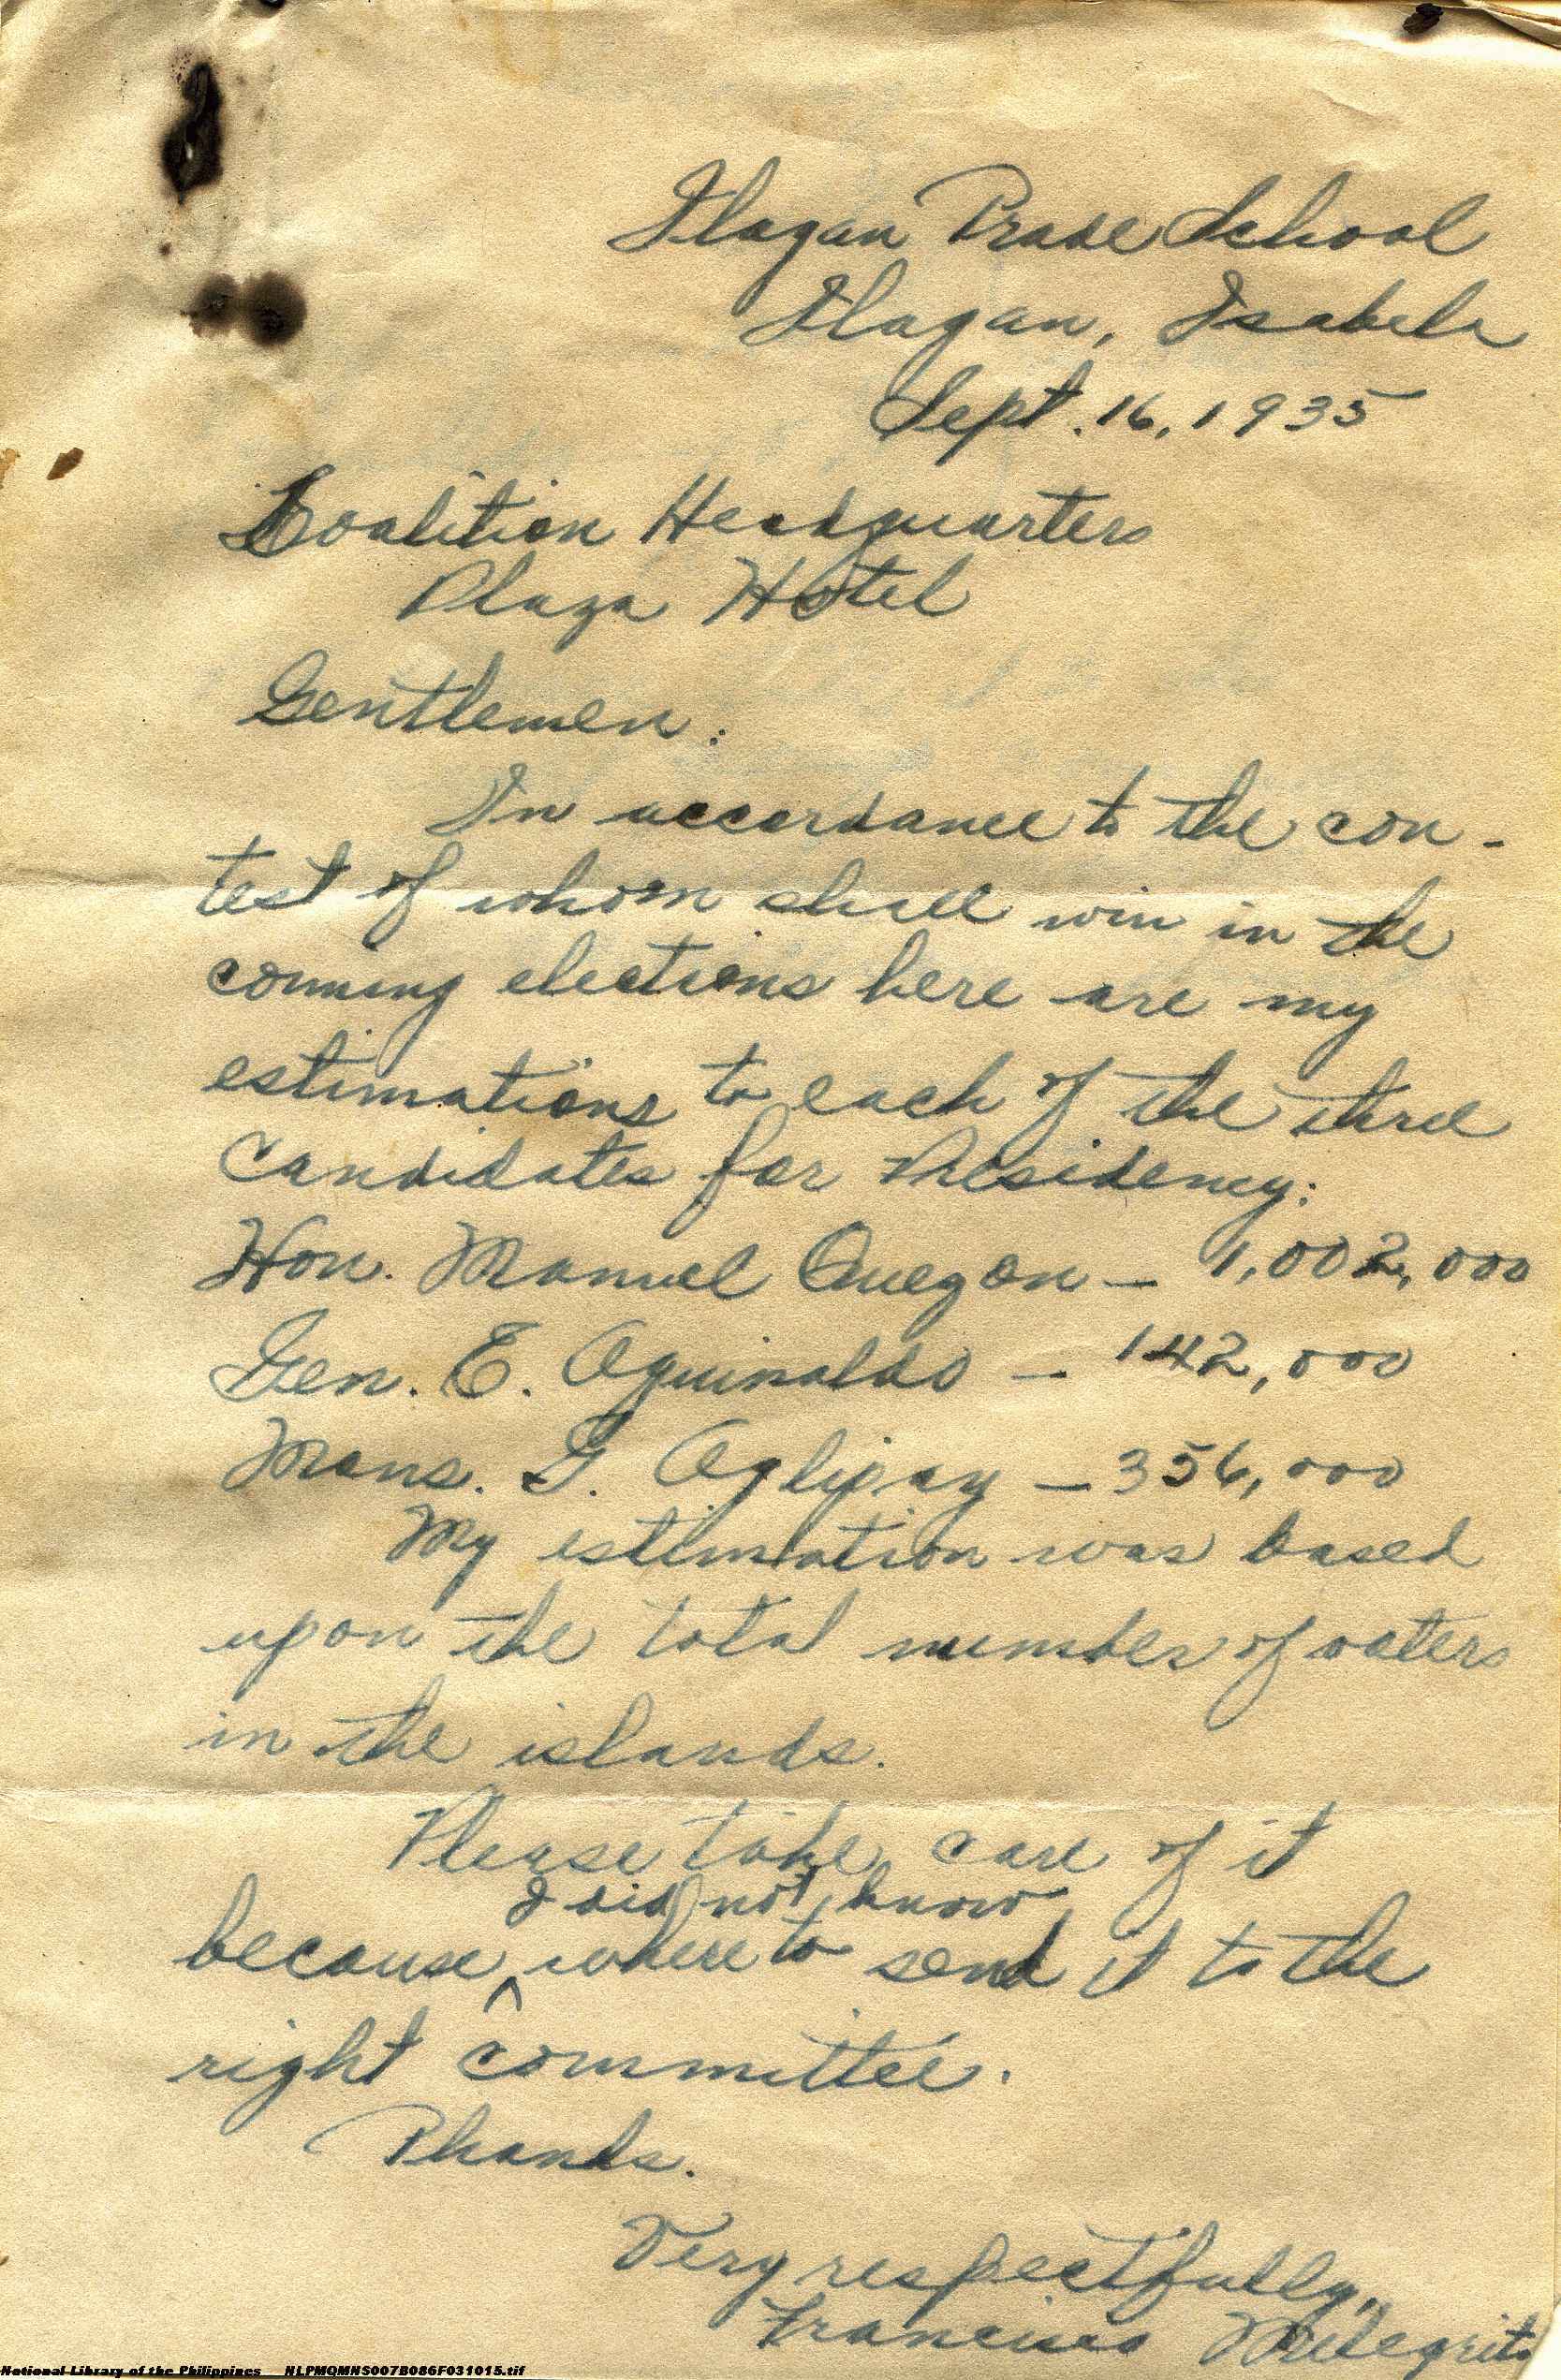 Ilagan Trade School
Ilagan, Isabela
Sept. 16, 1935
Coalition Headquarters
Plaza Hotel
Gentlemen:
In accordance to the con-
test of whom shall win in the
comming elections here are my
estimations to each of the three
candidates for Presidency:
Hon. Manuel Quezon — 1,002,000
Gen. E. Aguinaldo — 142,000
Mons. G. Aglipay — 356,000
My estimation was based
upon the total number of voters
in the islands.
Please take care of it
because I did not know where to send it to the
right committee.
Thanks.
Very respectfully,
Francisco
National Library of the Philippines NLPMQMNS007B086F031015.tif